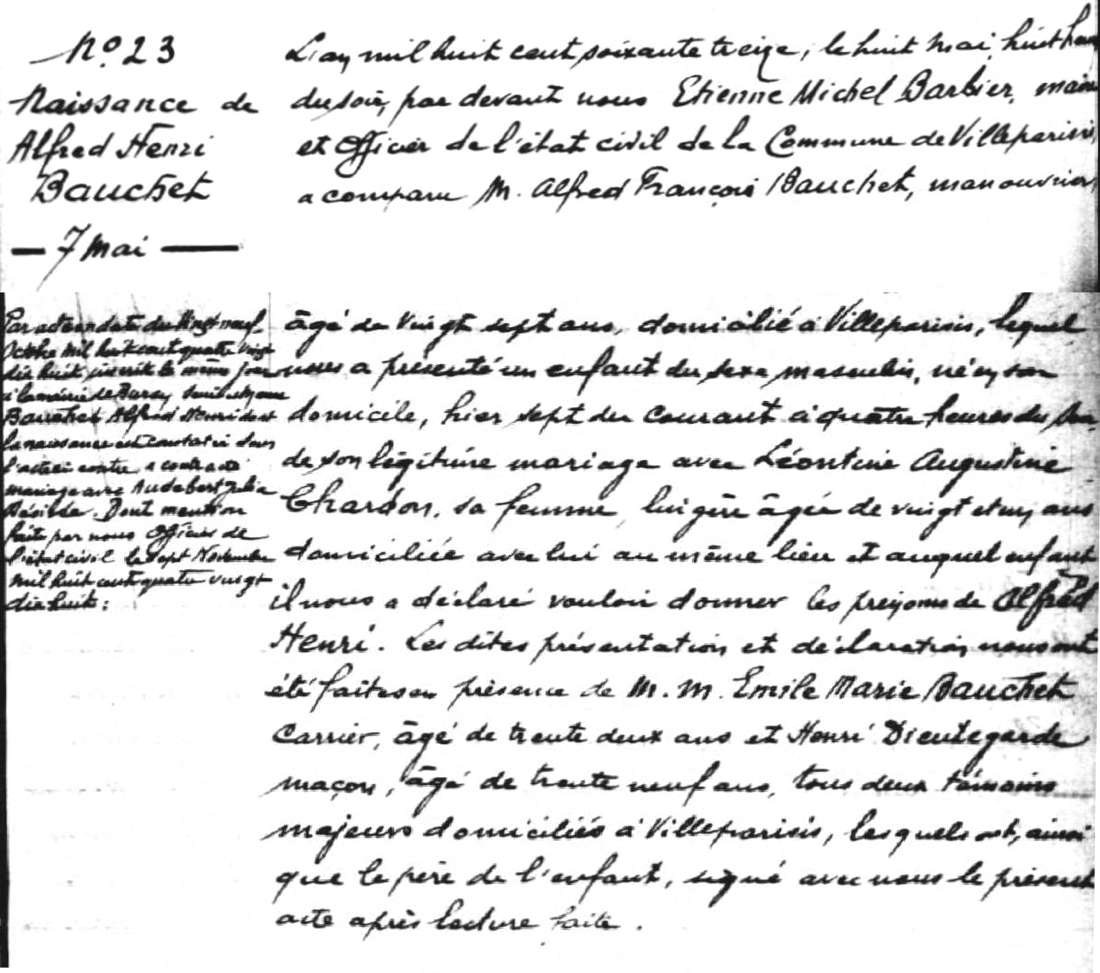 No. 23
Naissance de
Alfred Henri
Bauchet
— 7 Mai —
L'an mil huit cent soixante treize, le huit Mai, huit heu
du soir, par devant nous Etienne Michel Barbier, maire
et Officier de l'état civil de la Commune de Villeparisis,
a comparu M. Alfred François Bauchet, manouvrier,
âgé de vingt sept ans, domicilié à Villeparisis, lequel
nous a présenté un enfant du sexe masculin, né en son
domicile, hier sept du courant à quatre heures du soir
de son légitime mariage avec Léontine Augustine
Chardon, sa femme, lingère âgée de vingt et un ans
domiciliée avec lui au même lieu et auquel enfant
il nous a déclaré vouloir donner les prénoms de Alfred
Henri. Les dites présentation et déclaration nous ont
été faites en présence de M. M. Emile Marie Bauchet
Carrier, âgé de trente deux ans et Henri Dieutegarde
maçon, âgé de trente neuf ans, tous deux témoins
majeurs domiciliés à Villeparisis, lesquels ont, ainsi
que le père de l'enfant, signé avec nous le présent
acte après lecture faite.
Par acte en date du vingt neuf
Octobre mil huit cent quatre vingt
dix huit, inscrit le même jour
à la mairie de
Bauchet Alfred Henri dont
la naissance est constatée dans
l'acte ci contre a contracté
mariage avec Audebert Julia
Désirée. Dont mention
faite par nous Officier de
l'état civil le sept Novembre
mil huit cent quatre vingt
dix huit :